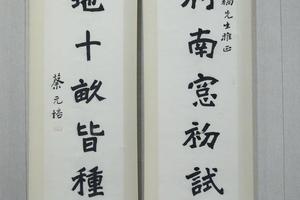 南窓初試
先生雅正
地十畝皆種
蔡元培